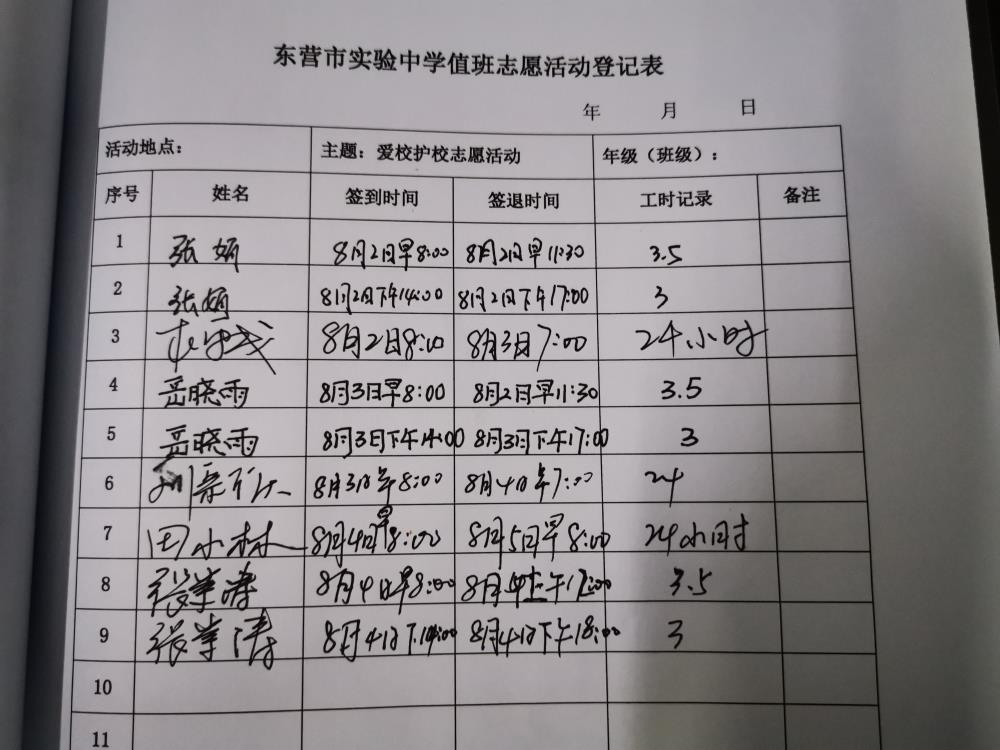 东营市实验中学值班志愿活动登记表
年 月 日
活动地点: 主题:爱校护校志愿活动 年级(班级):
序号 姓名 签到时间 签退时间 工时记录 备注
1 张娟 8月2日早8:00 8月2日早11:30 3.5
2 张娟 8月2日下午14:00 8月2日下午17:00 3
3 8月2日8:00 8月3日7:00 24小时
4 岳晓雨 8月3日早8:00 8月2日早11:30 3.5
5 岳晓雨 8月3日下午14:00 8月3日下午17:00 3
6 8月3日早8:00 8月4日午7:00 24
7 田小林 8月4日早8:00 8月5日早8:00 24小时
8 8月4日早8:00 3.5
9 8月4日下14:00 8月4日下午18:00 3
10
11